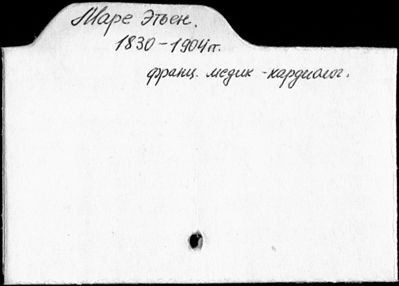 Маре Этьен.
1830-1904 гг.
франц. медик-кардиолог.